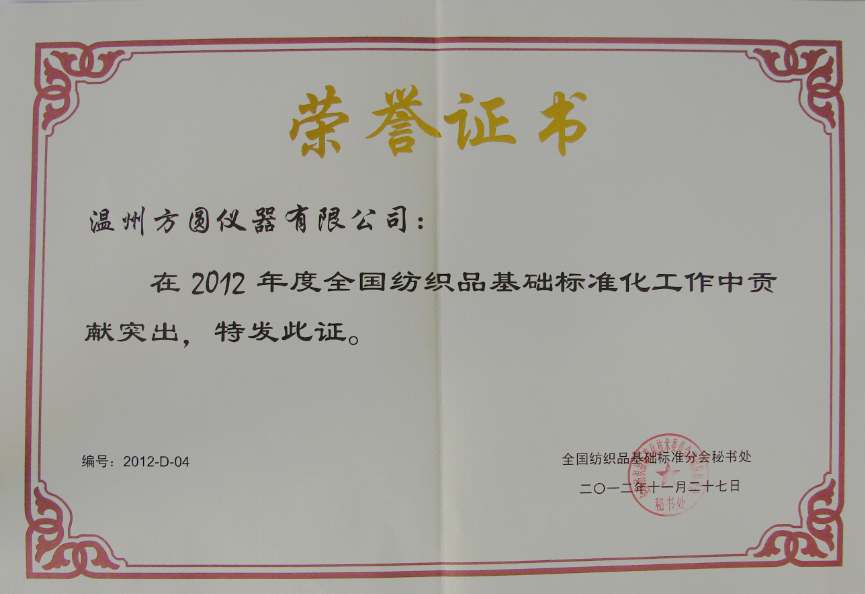 荣誉证书
温州方圆仪器有限公司：
在 2012 年度全国纺织品基础标准化工作中贡
献突出，特发此证。
编号：2012-D-04
全国纺织品基础标准分会秘书处
二〇一二年十一月二十七日
秘书处